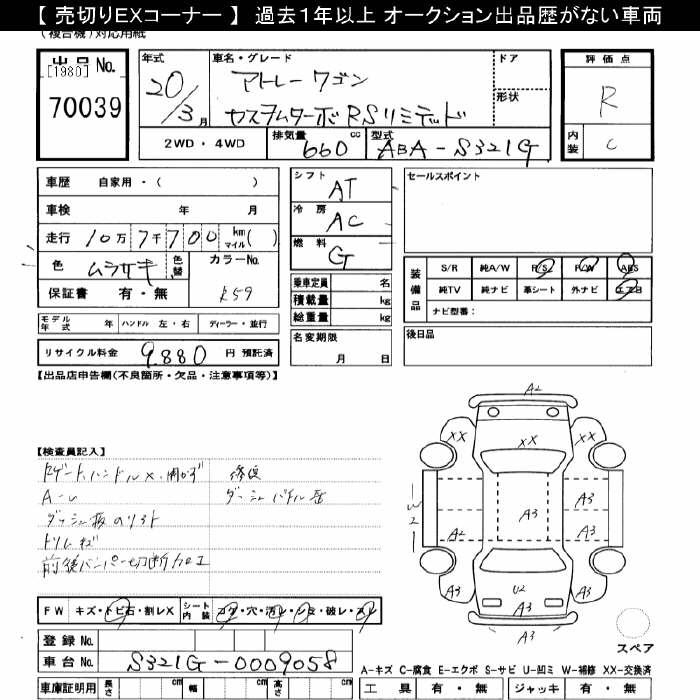 【 売切りEXコーナー 】 過去1年以上 オークション出品歴がない車両
(複合機)対応用紙
出品 No.
[1980]
70039
年式
20/3月
車名・グレード
アトレーワゴン
カスタムターボRSリミテッド
ドア
形状
評価点
R
内装
C
2WD・4WD
排気量
660 cc
型式
ABA-S321G
車歴 自家用・( )
車検 年 月
走行 10万7千700 km マイル( )
色 ムラサキ 色替 カラーNo.
保証書 有・無 R59
モデル年式 年 ハンドル 左・右 ディーラー・並行
リサイクル料金 9880 円 預託済
シフト AT
冷房 AC
燃料 G
乗車定員 名
積載量 kg
総重量 kg
名変期限
月 日
セールスポイント
装備品
S/R 純A/W P/S P/W ABS
純TV 純ナビ 革シート 外ナビ エアB
ナビ型番:
後日品
【出品店申告欄(不良箇所・欠品・注意事項等)】
【検査員記入】
A-U
トリムキズ
前後バンパー切断加工
修復
FW キズ・トビ石・割レX シート内装 コゲ・穴・汚レ・シミ・破レ・スレ
登録 No.
車台 No. S321G-0009058
車庫証明用 長さ cm 幅 cm 高さ cm
A2
XX XX XX
W2
A3 A3
A2 A3
A3 U2 A3
A3
スペア
A-キズ C-腐食 E-エクボ S-サビ U-凹ミ W-補修 XX-交換済
工具 有・無 ジャッキ 有・無